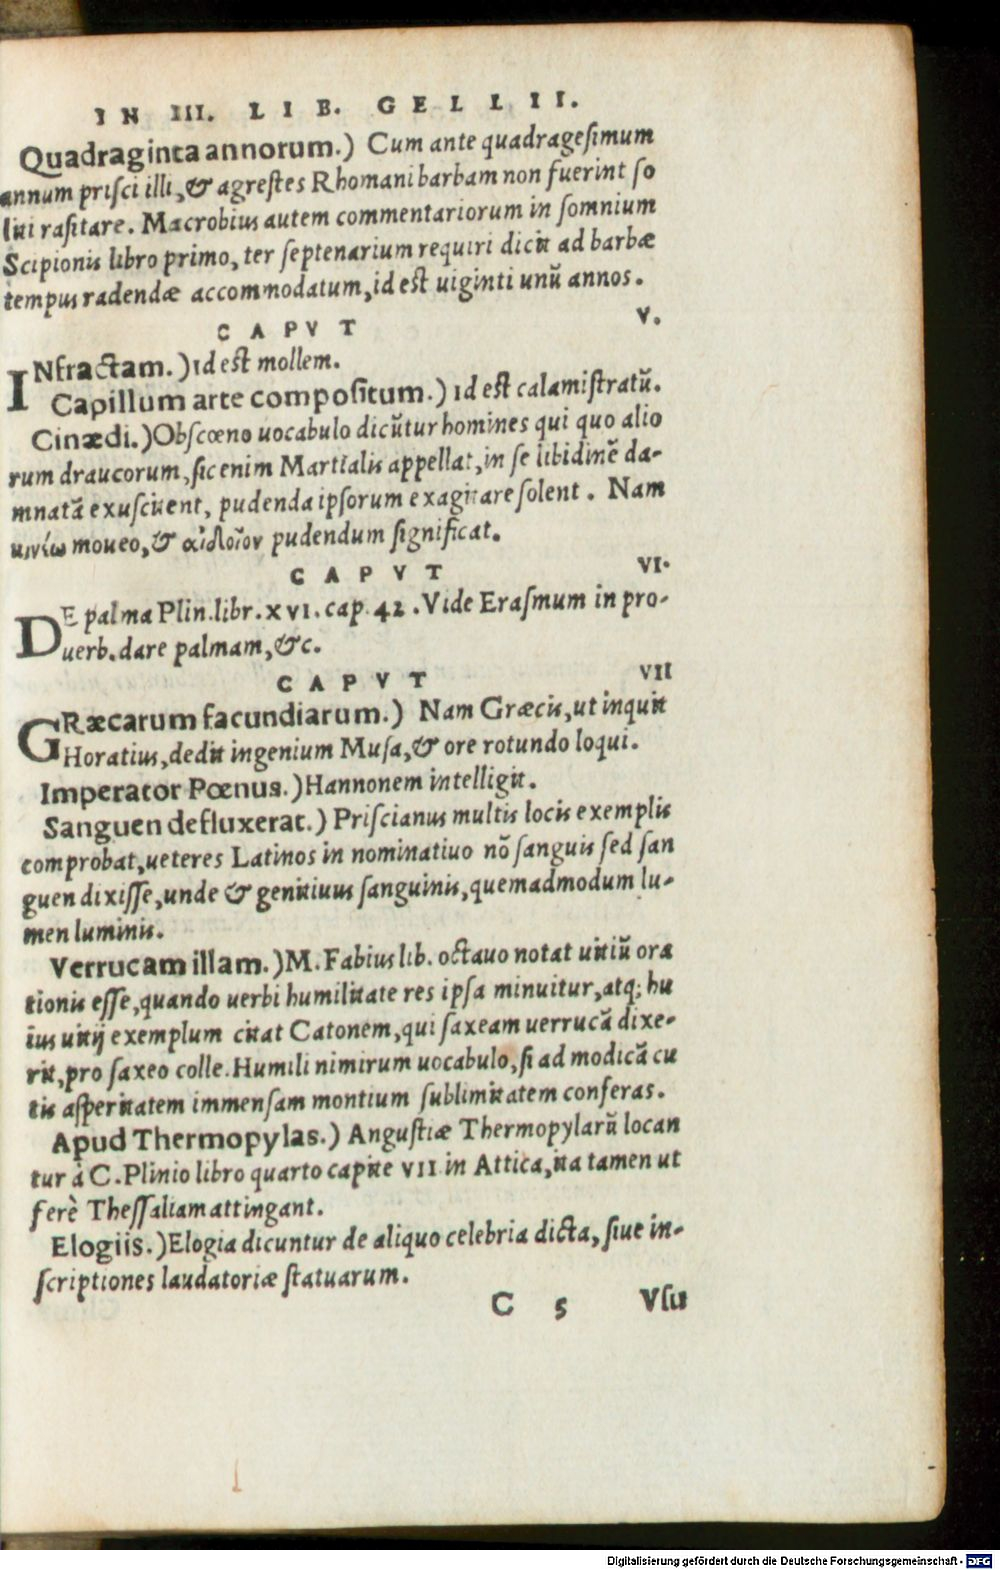 IN III. LIB. GELLII.
Quadraginta annorum.) Cum ante quadragesimum
annum prisci illi, & agrestes Rhomani barbam non fuerint so
liti rasitare. Macrobius autem commentariorum in somnium
Scipionis libro primo, ter septenarium requiri dicit ad barbæ
tempus radendæ accommodatum, id est uiginti unũ annos.
CAPVT V.
INfractam.) id est mollem.
Capillum arte compositum.) id est calamistratũ.
Cinædi.) Obscœno uocabulo dicũtur homines qui quo alio
rum draucorum, sic enim Martialis appellat, in se libidinẽ da-
mnatã exuscitent, pudenda ipsorum exagitare solent. Nam
κινέω moueo, & αἰδοῖον pudendum significat.
CAPVT VI.
DE palma Plin. libr. xvi. cap. 42. Vide Erasmum in pro-
uerb. dare palmam, &c.
CAPVT VII
GRæcarum facundiarum.) Nam Græcis, ut inquit
Horatius, dedit ingenium Musa, & ore rotundo loqui.
Imperator Pœnus.) Hannonem intelligit.
Sanguen defluxerat.) Priscianus multis locis exemplis
comprobat, ueteres Latinos in nominatiuo nõ sanguis sed san
guen dixisse, unde & genitiuus sanguinis, quemadmodum lu-
men luminis.
Verrucam illam.) M. Fabius lib. octauo notat uitiũ ora
tionis esse, quando uerbi humilitate res ipsa minuitur, atq; hu
ius uitij exemplum citat Catonem, qui saxeam uerrucã dixe-
rit, pro saxeo colle. Humili nimirum uocabulo, si ad modicã cu
tis asperitatem immensam montium sublimitatem conferas.
Apud Thermopylas.) Angustiæ Thermopylarũ locan
tur à C. Plinio libro quarto capite VII in Attica, ita tamen ut
ferè Thessaliam attingant.
Elogiis.) Elogia dicuntur de aliquo celebria dicta, siue in-
scriptiones laudatoriæ statuarum.
C 5 Vsu
Digitalisierung gefördert durch die Deutsche Forschungsgemeinschaft - DFG